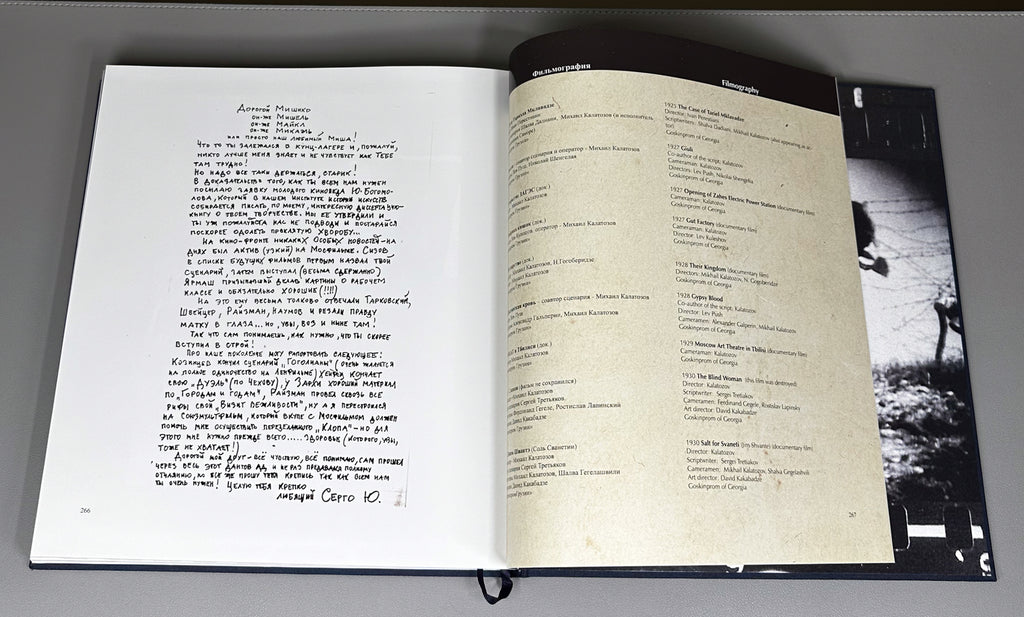 Дорогой Мишико
он-же Мишель
он-же Майкл
он-же Микаэль
или просто наш любимый Миша!
Что то ты залежался в кунц-лагере и, пожалуй,
никто лучше меня знает и не чувствует как тебе
там трудно!
Но надо все таки держаться, старик!
В доказательство того, как ты всем нам нужен
посылаю заявку молодого киноведа Ю. Богомо-
лова, который в нашем институте истории искусств
собирается писать, по моему, интересную диссертацию-
книгу о твоем творчестве. Мы её утвердили и
ты уж пожалуйста нас не подводи и постарайся
поскорее одолеть проклятую хворобу...
На кино-фронте никаких особых новостей-на
днях был актив (узкий) на Мосфильме. Сизов
в списке будущих фильмов первым назвал твой
сценарий, затем выступал (весьма сдержанно)
Ярмаш призывавший делать картины о рабочем
классе и обязательно хорошие (!!!!)
На это ему весьма толково отвечали Тарковский,
Швейцер, Райзман, Наумов и резали правду
матку в глаза... но, увы, воз и ныне там!
Так что сам понимаешь, как нужно, что ты скорее
вступил в строй!
Про наше поколение могу рапортовать следующее:
Козинцев кончил сценарий "Гоголианы" (очень жалуется
на полное одиночество на Ленфильме) Хейфиц кончает
свою "Дуэль" (по Чехову), у Зархи хороший материал
по "Городам и годам", Райзман провел сквозь все
рифы свой "Визит вежливости", ну а я перестроился
на Союзмультфильм, который вкупе с Мосфильмом должен
помочь мне осуществить переделанного "Клопа" - но для
этого мне нужно прежде всего..... здоровье (которого, увы,
тоже не хватает!)
Дорогой мой друг - всё чувствую, всё понимаю, сам прошел
через весь этот Дантов ад, и не раз предавался полному
отчаянию, но все же прошу тебя крепись так как всем нам
ты очень нужен! Целую тебя крепко
любящий Серго Ю.
266
Фильмография
Михаил Калатозов (в исполнитель
соавтор сценария и оператор - Михаил Калатозов
Лев Пуш, Николай Шенгелая
ЗАГЭС (док.)
Михаил Калатозов
оператор - Михаил Калатозов
(док.)
Михаил Калатозов, Н.Гогоберидзе
кровь - соавтор сценария - Михаил Калатозов
Александр Гальперин, Михаил Калатозов
в Тбилиси (док.)
Михаил Калатозов
(фильм не сохранился)
Сергей Третьяков.
Фердинанд Гегеле, Ростислав Лапинский
Давид Какабадзе
Шванте (Соль Сванетии)
Михаил Калатозов
Сергей Третьяков
Михаил Калатозов, Шалва Гегелашвили
Давид Какабадзе
Filmography
1925 The Case of Tariel Mklavadze
Director: Ivan Perestiani
Scriptwriters: Shalva Dadiani, Mikhail Kalatozov (also appearing as ac-
tor)
Goskinprom of Georgia
1927 Giuli
Co-author of the script, Kalatozov.
Directors: Lev Push, Nikolai Shengelia
Cameraman: Kalatozov
Goskinprom of Georgia
1927 Opening of Zahes Electric Power Station (documentary film)
Cameraman: Kalatozov
Goskinprom of Georgia
1927 Gut Factory (documentary film)
Cameraman: Kalatozov
Director: Lev Kuleshov
Goskinprom of Georgia
1928 Their Kingdom (documentary film)
Directors: Mikhail Kalatozov, N. Gogoberidze
Cameraman: Kalatozov
Goskinprom of Georgia
1928 Gypsy Blood
Co-author of the script, Kalatozov.
Director: Lev Push
Cameramen: Alexander Galperin, Mikhail Kalatozov
Goskinprom of Georgia
1929 Moscow Art Theatre in Tbilisi (documentary film)
Cameraman: Kalatozov
Goskinprom of Georgia
1930 The Blind Woman (this film was destroyed)
Director: Kalatozov
Scriptwriter: Sergei Tretiakov
Cameramen: Ferdinand Gegele, Rostislav Lapinsky
Art director: David Kakabadze
Goskinprom of Georgia
1930 Salt for Svaneti (Jim Shvante) (documentary film)
Director: Kalatozov
Scriptwriter: Sergei Tretiakov
Cameramen: Mikhail Kalatozov, Shalva Gegelashvili
Art director: David Kakabadze
Goskinprom of Georgia
267